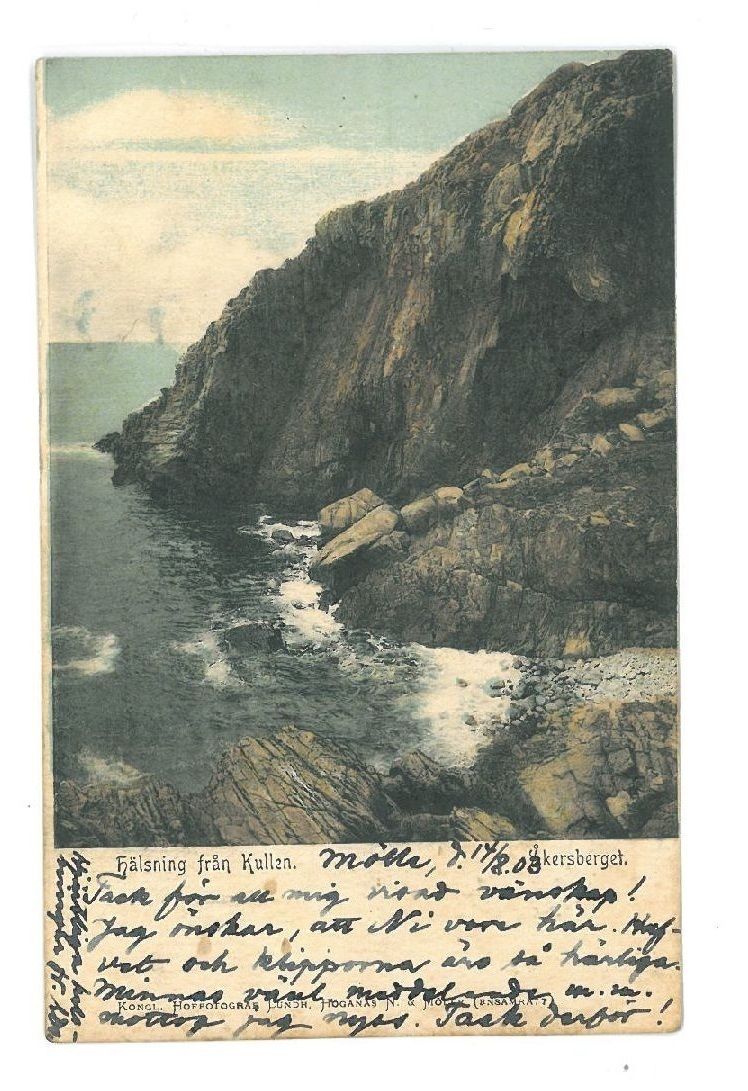 Hälsning från Kullen. Mölle, d. 14/8.03 Åkersberget.
Tack för all mig visad vänskap!
Jag önskar, att Ni vore här. Haf-
vet och klipporna äro så härliga.
Minnas vänl. meddelande m.m.
mottog jag nyss. Tack derför!
KONGL. HOFFOTOGRAF LUNDH, HÖGANÄS N. & MÖLLE (ENSAMRÄTT)